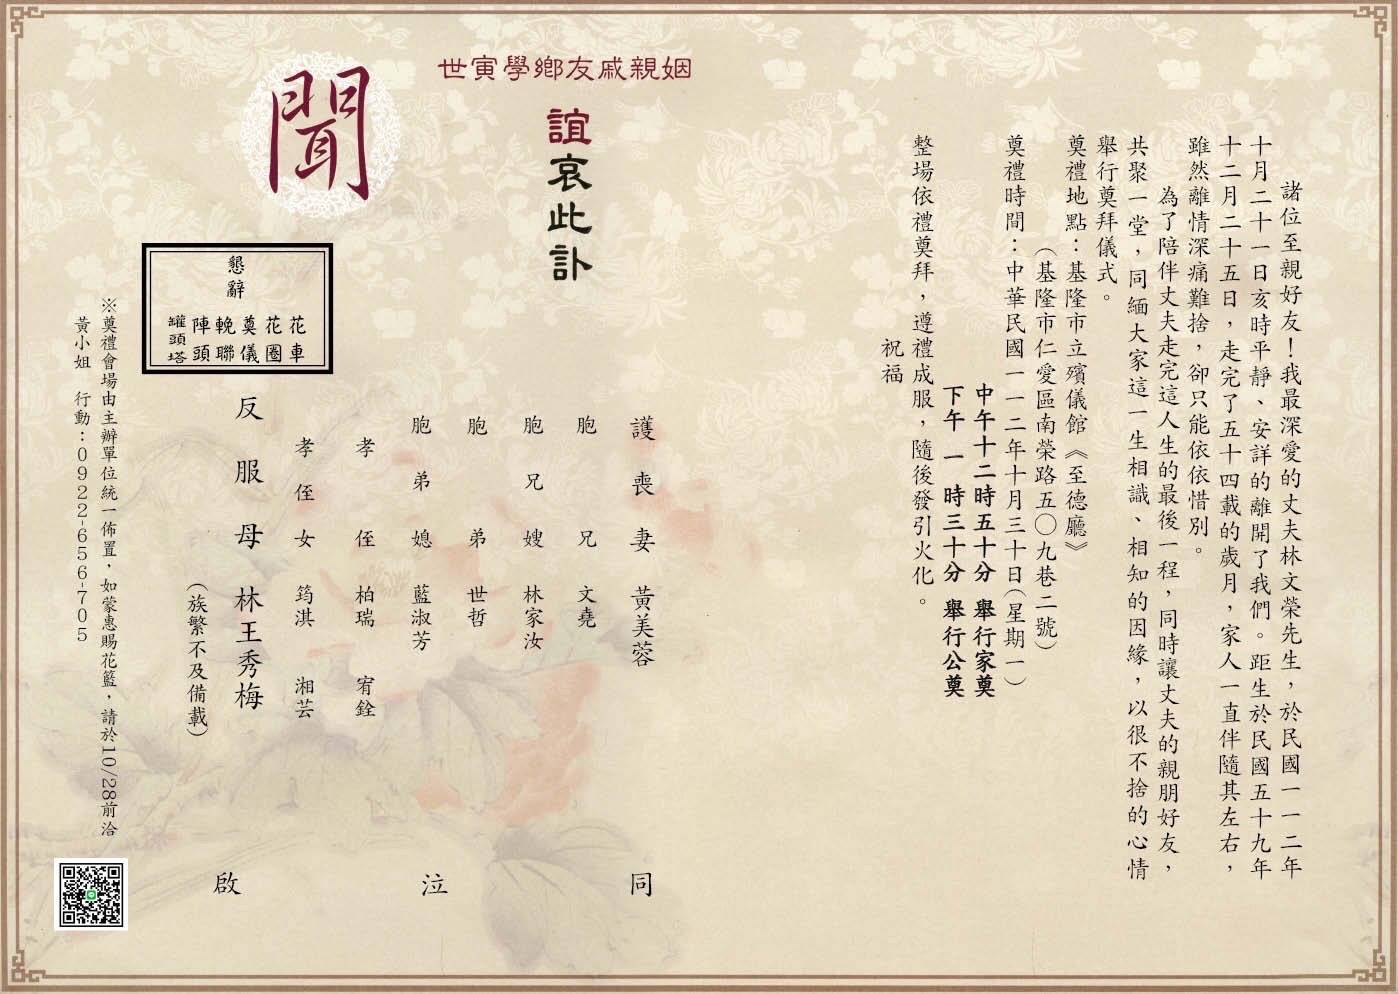 諸位至親好友！我最深愛的丈夫林文榮先生，於民國一一二年
十月二十一日亥時平靜、安詳的離開了我們。距生於民國五十九年
十二月二十五日，走完了五十四載的歲月，家人一直伴隨其左右，
雖然離情深痛難捨，卻只能依依惜別。
為了陪伴丈夫走完這人生的最後一程，同時讓丈夫的親朋好友，
共聚一堂，同緬大家這一生相識、相知的因緣，以很不捨的心情
舉行奠拜儀式。
奠禮地點：基隆市立殯儀館《至德廳》
（基隆市仁愛區南榮路五〇九巷二號）
奠禮時間：中華民國一一二年十月三十日（星期一）
中午十二時五十分 舉行家奠
下午 一 時三十分 舉行公奠
整場依禮奠拜，遵禮成服，隨後發引火化。
祝福
世寅學鄉友戚親姻
誼哀此訃
聞
懇辭
花車
花圈
奠儀
輓聯
陣頭
罐頭塔
護喪妻 黃美蓉
胞兄 文堯
胞兄嫂 林家汝
胞弟 世哲
胞弟媳 藍淑芳
孝侄 柏瑞 宥銓
孝侄女 筠淇 湘芸
反服母 林王秀梅
（族繁不及備載）
同 泣 啟
※奠禮會場由主辦單位統一佈置，如蒙惠賜花籃，請於10/28前洽
黃小姐 行動：0922-656-705